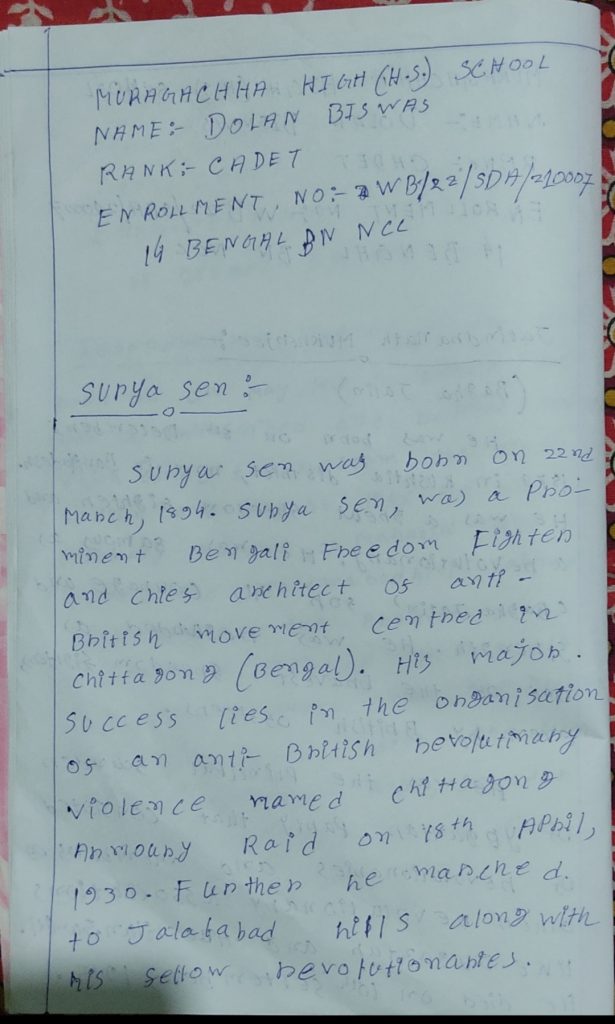 MURAGACHHA HIGH (H.S.) SCHOOL
NAME:- DOLAN BISWAS
RANK:- CADET
ENROLLMENT. NO:- WB/22/SDA/210007
14 BENGAL BN NCC
Surya Sen :-
Surya Sen was born on 22nd
March, 1894. Surya Sen, was a Pro-
minent Bengali Freedom Fighter
and chief architect of anti-
British movement centred in
Chittagong (Bengal). His major.
success lies in the organisation
of an anti- British revolutinary
violence named chittagong
Armoury Raid on 18th April,
1930. Further he marched.
to Jalalabad hills along with
his fellow revolutionaries.